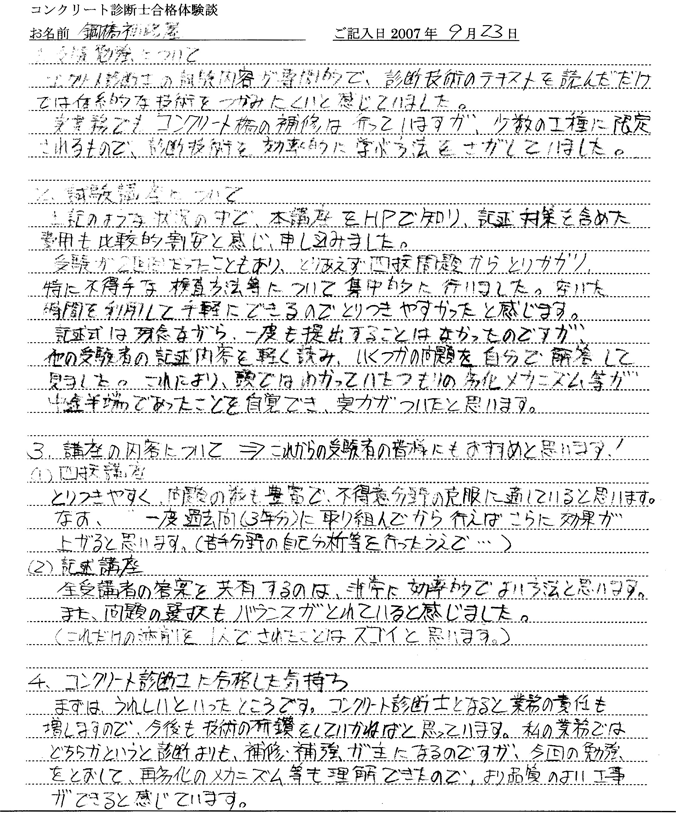 コンクリート診断士合格体験談
お名前 鋼橋補修屋 ご記入日 2007年 9月 23日
1. 受験勉強について
コンクリート診断士の試験内容が専門的で、診断技術のテキストを読んだだけ
では体系的な技術をつかみにくいと感じていました。
実業務でもコンクリート橋の補修は行っていますが、少数の工種に限定
されるもので、診断技術を効率的に学ぶ方法をさがしていました。
2. 試験講座について
上記のような状況の中で、本講座をHPで知り、記述対策を含めた
費用も比較的割安と感じ、申し込みました。
受験が2回目だったこともあり、とりあえず四択問題からとりかかり、
特に不得手な検査方法等について集中的に行いました。空いた
時間を利用して手軽にできるのでとりつきやすかったと感じます。
記述式は残念ながら、一度も提出することはなかったのですが
他の受験者の記述内容を軽く読み、いくつかの問題を自分で解答して
見ました。これにより、頭ではわかっていたつもりの劣化メカニズム等が
中途半端であったことを自覚でき、実力がついたと思います。
3. 講座の内容について ⇒ これからの受験者の皆様にもおすすめと思います!
(1) 四択講座
とりつきやすく、問題の数も豊富で、不得意分野の克服に適していると思います。
なお、一度過去問(3年分)に取り組んでから行えばさらに効果が
上がると思います。(苦手分野の自己分析等を行ったうえで…)
(2) 記述講座
全受講者の答案を共有するのは、非常に効率的でよい方法と思います。
また、問題の選択もバランスがとれていると感じました。
(これだけの添削を1人でされたことはスゴイと思います。)
4. コンクリート診断士に合格した気持ち
まずは、うれしいといったところです。コンクリート診断士となると業務の責任も
増しますので、今後も技術の研鑽をしていかねばと思っています。私の業務では
どちらかというと診断よりも、補修・補強が主になるのですが、今回の勉強
をとおして、再劣化のメカニズム等も理解できたので、より品質のよい工事
ができると感じています。